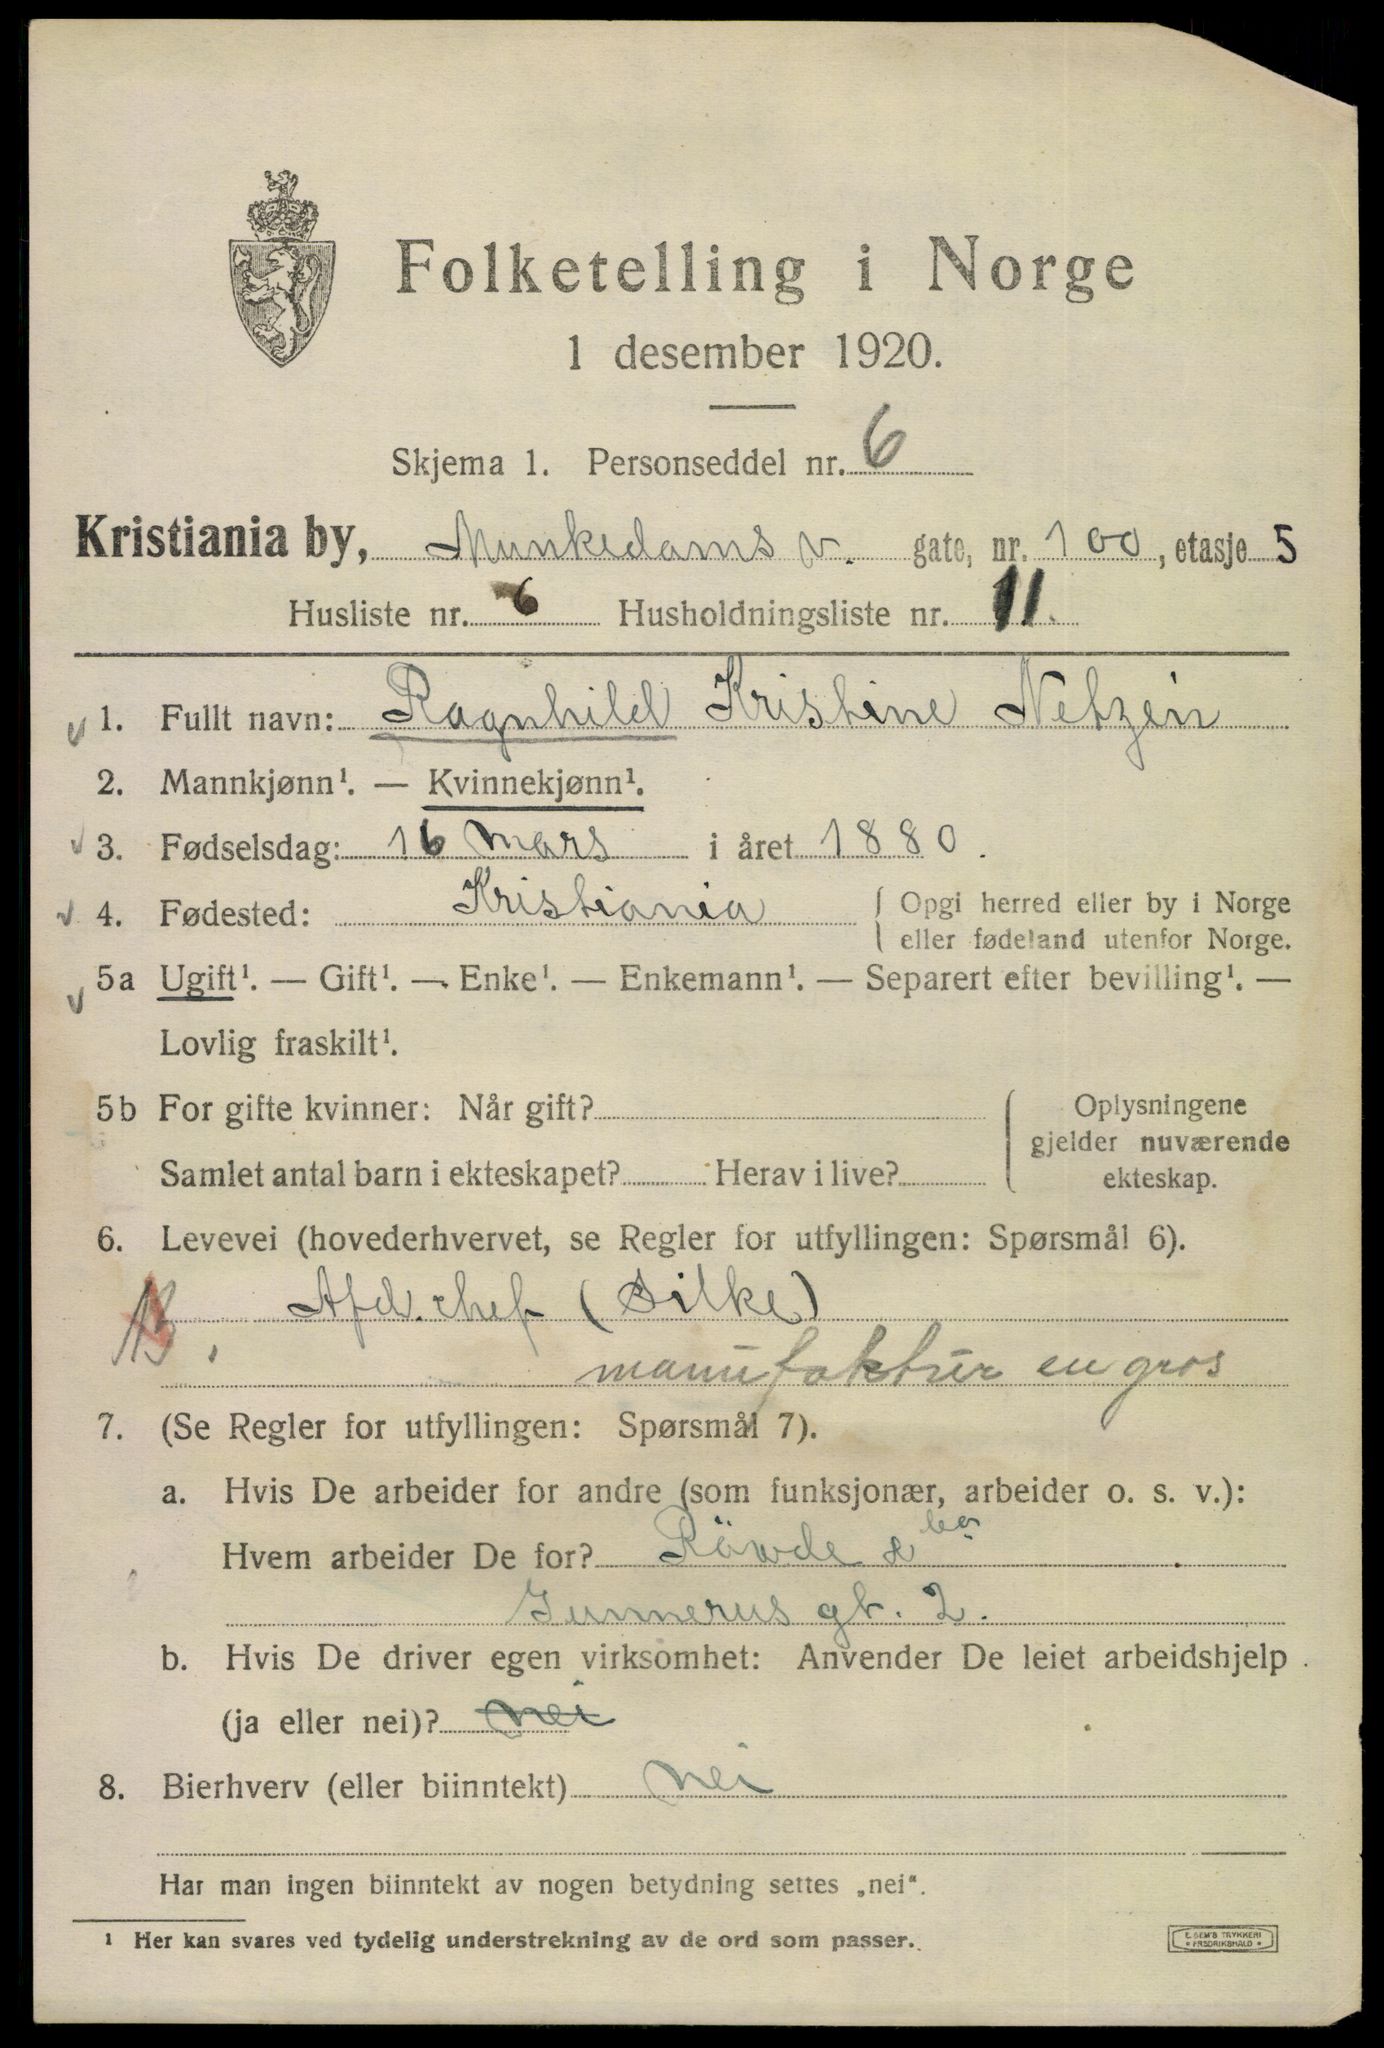 Folketelling i Norge
1 desember 1920.
Skjema 1. Personseddel nr. 6
Kristiania by, Munkedams v. gate, nr. 100, etasje 5
Husliste nr. 6 Husholdningsliste nr. 11.
1. Fullt navn: Ragnhild Kristine Netzén
2. Mannkjønn¹. — Kvinnekjønn¹.
3. Fødselsdag: 16 mars i året 1880.
4. Fødested: Kristiania { Opgi herred eller by i Norge
eller fødeland utenfor Norge.
5a Ugift¹. — Gift¹. — Enke¹. — Enkemann¹. — Separert efter bevilling¹. —
Lovlig fraskilt¹.
5b For gifte kvinner: Når gift? { Oplysningene
gjelder nuværende
Samlet antal barn i ekteskapet? Herav i live? ekteskap.
6. Levevei (hovederhvervet, se Regler for utfyllingen: Spørsmål 6).
Afd. chef (Silke)
manufaktur en gros
7. (Se Regler for utfyllingen: Spørsmål 7).
a. Hvis De arbeider for andre (som funksjonær, arbeider o. s. v.):
Hvem arbeider De for? Råwde &
Gunnerus gt. 2.
b. Hvis De driver egen virksomhet: Anvender De leiet arbeidshjelp
(ja eller nei)? nei
8. Bierhverv (eller biinntekt) nei
Har man ingen biinntekt av nogen betydning settes „nei".
¹ Her kan svares ved tydelig understrekning av de ord som passer.
E. SEM'S TRYKKERI
• FREDRIKSHALD •